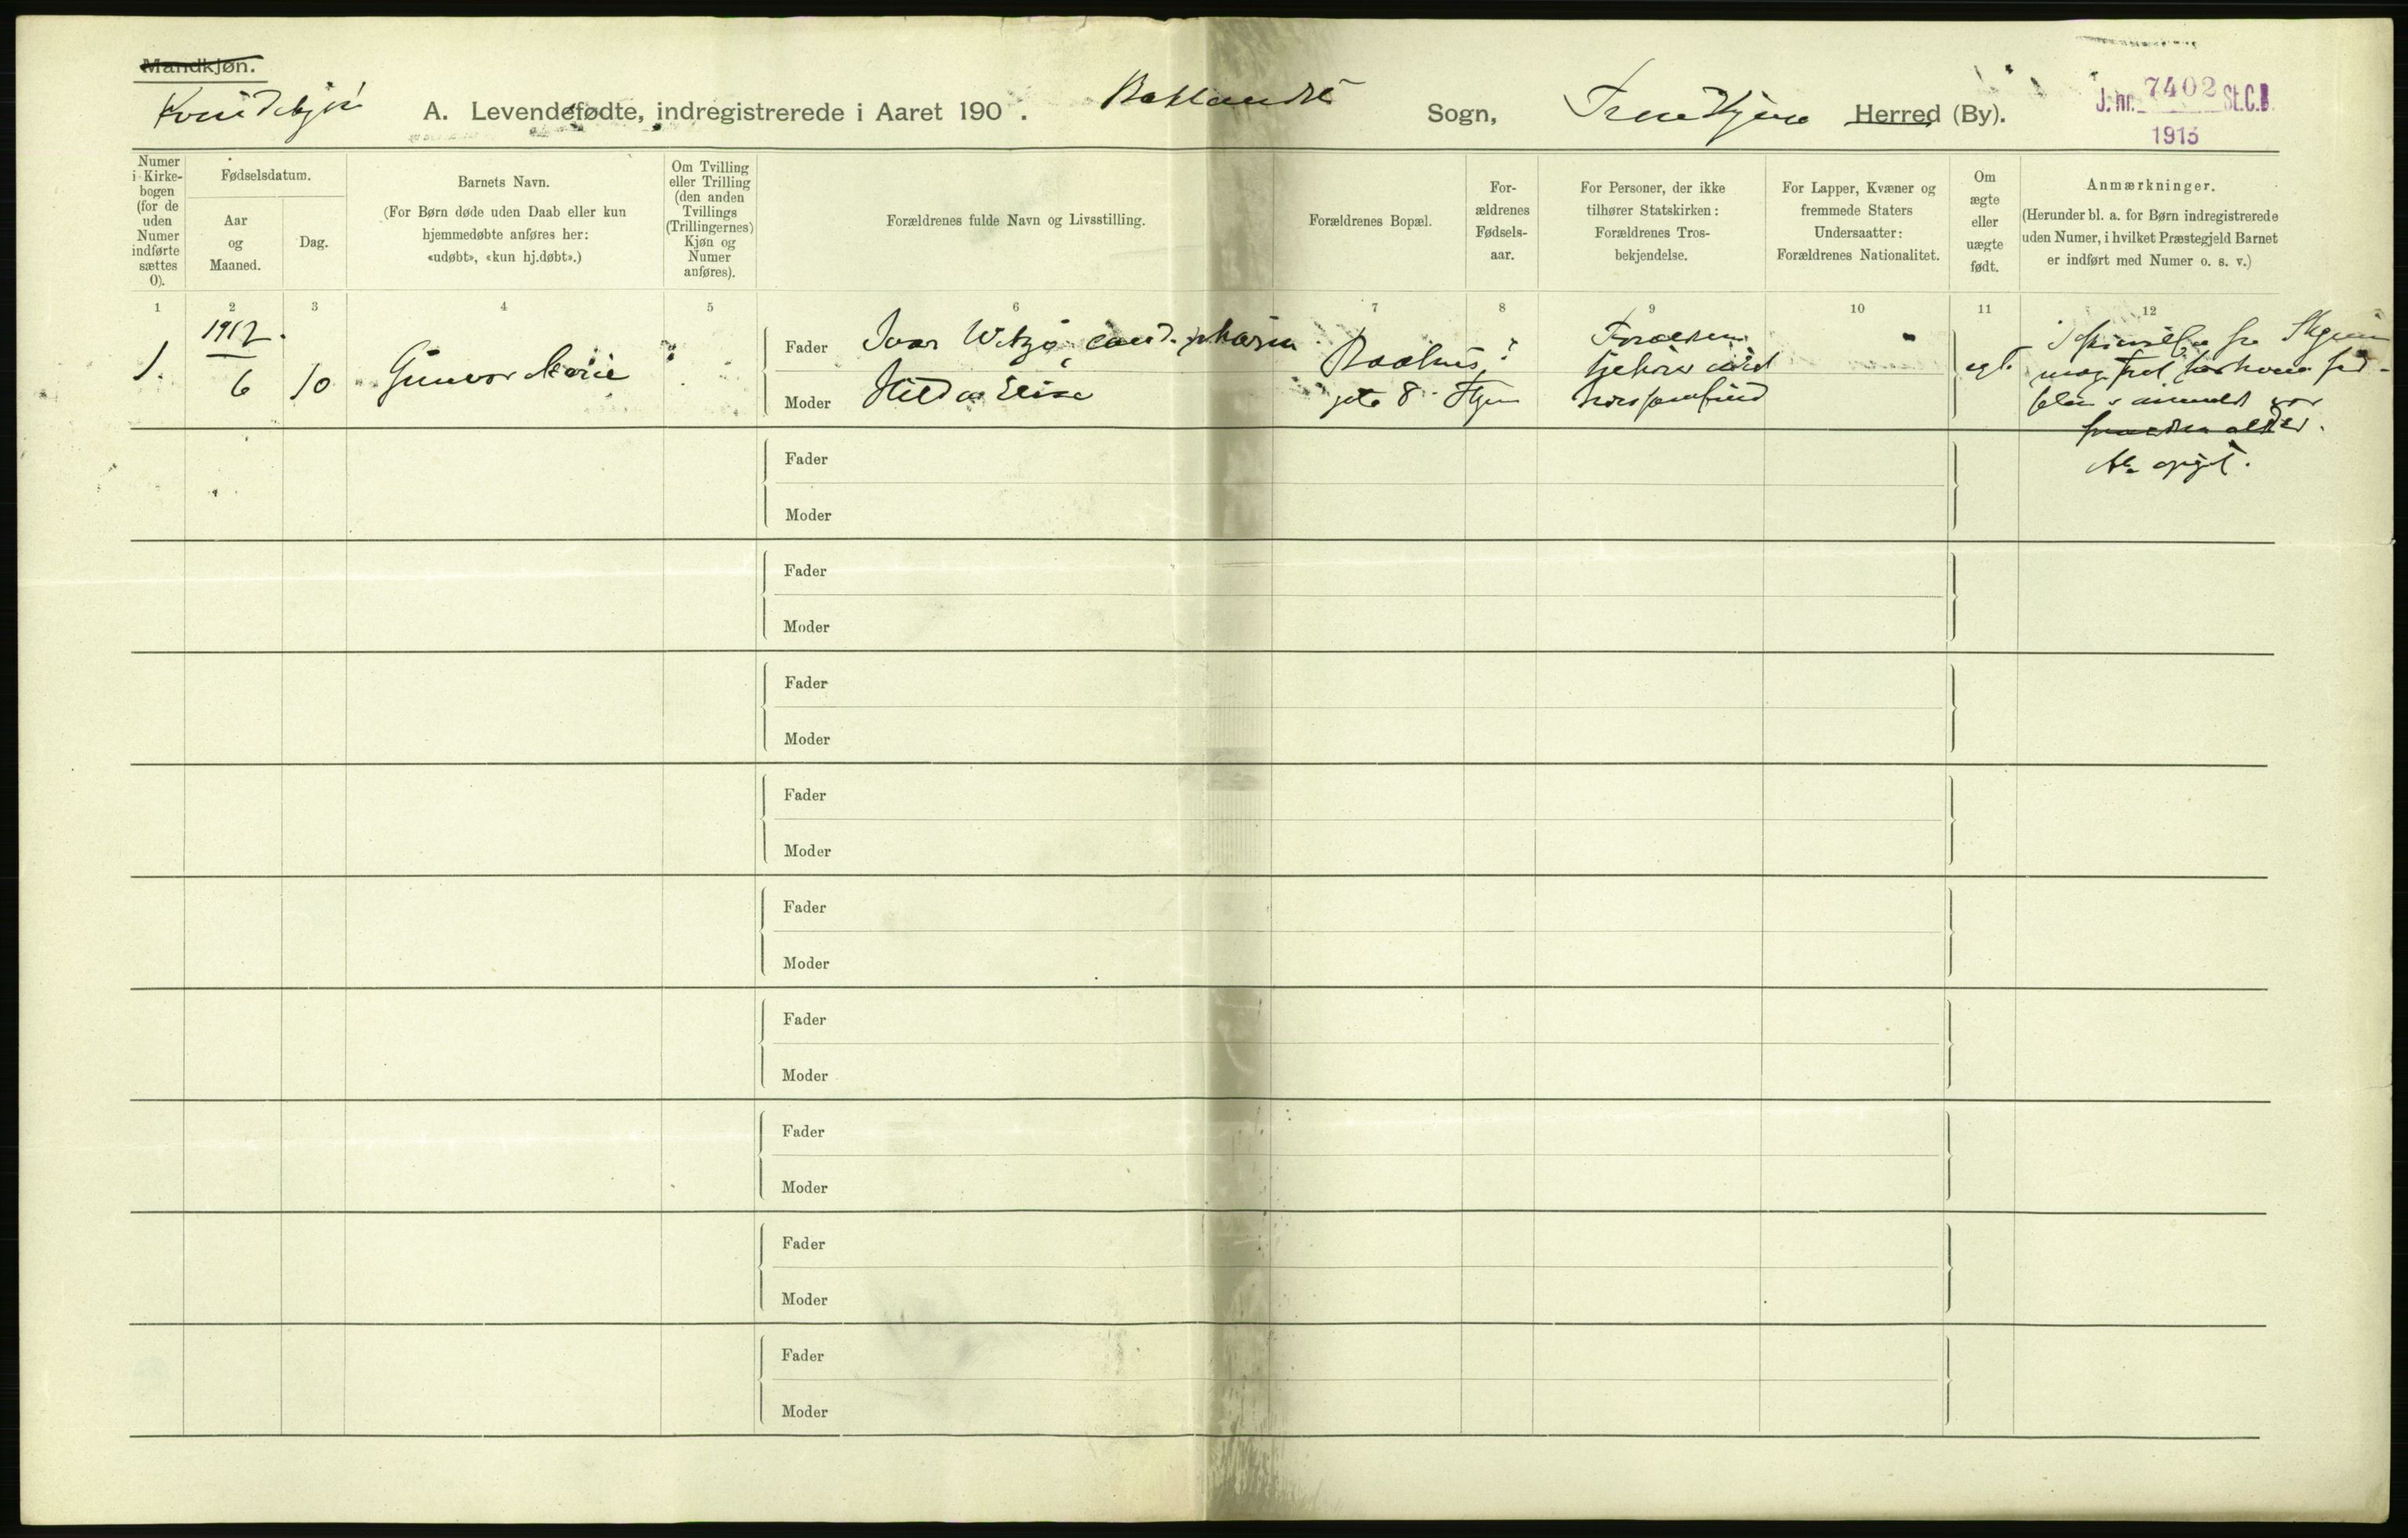 Mandkjøn.
Kvindekjøn
A. Levendefødte, indregistrerede i Aaret 190 . Baklandet Sogn, Trondhjem Herred (By).
J. nr. 7402 St.C.B.
1913
Numer i Kirkebogen (for de uden Numer indførte sættes 0).
Fødselsdatum.
Aar og Maaned.
Dag.
Barnets Navn.
(For Børn døde uden Daab eller kun hjemmedøbte anføres her: «udøbt», «kun hj.døbt».)
Om Tvilling eller Trilling (den anden Tvillings (Trillingernes) Kjøn og Numer anføres).
Forældrenes fulde Navn og Livsstilling.
Forældrenes Bopæl.
For-ældrenes Fødsels-aar.
For Personer, der ikke tilhører Statskirken: Forældrenes Tros-bekjendelse.
For Lapper, Kvæner og fremmede Staters Undersaatter: Forældrenes Nationalitet.
Om ægte eller uægte født.
Anmærkninger.
(Herunder bl. a. for Børn indregistrerede uden Numer, i hvilket Præstegjeld Barnet er indført med Numer o. s. v.)
1 2 3 4 5 6 7 8 9 10 11 12
1912.
1. 6 10 Gunvor Marie
Fader Ivar Witzø, cand. pharm.
Moder Hilda Elise
Raadhus
gt. 8 Thjem
?
Forældrene
tilhører intet
trossamfund
egt.
Fader
Moder
Fader
Moder
Fader
Moder
Fader
Moder
Fader
Moder
Fader
Moder
Fader
Moder
Fader
Moder
Fader
Moder